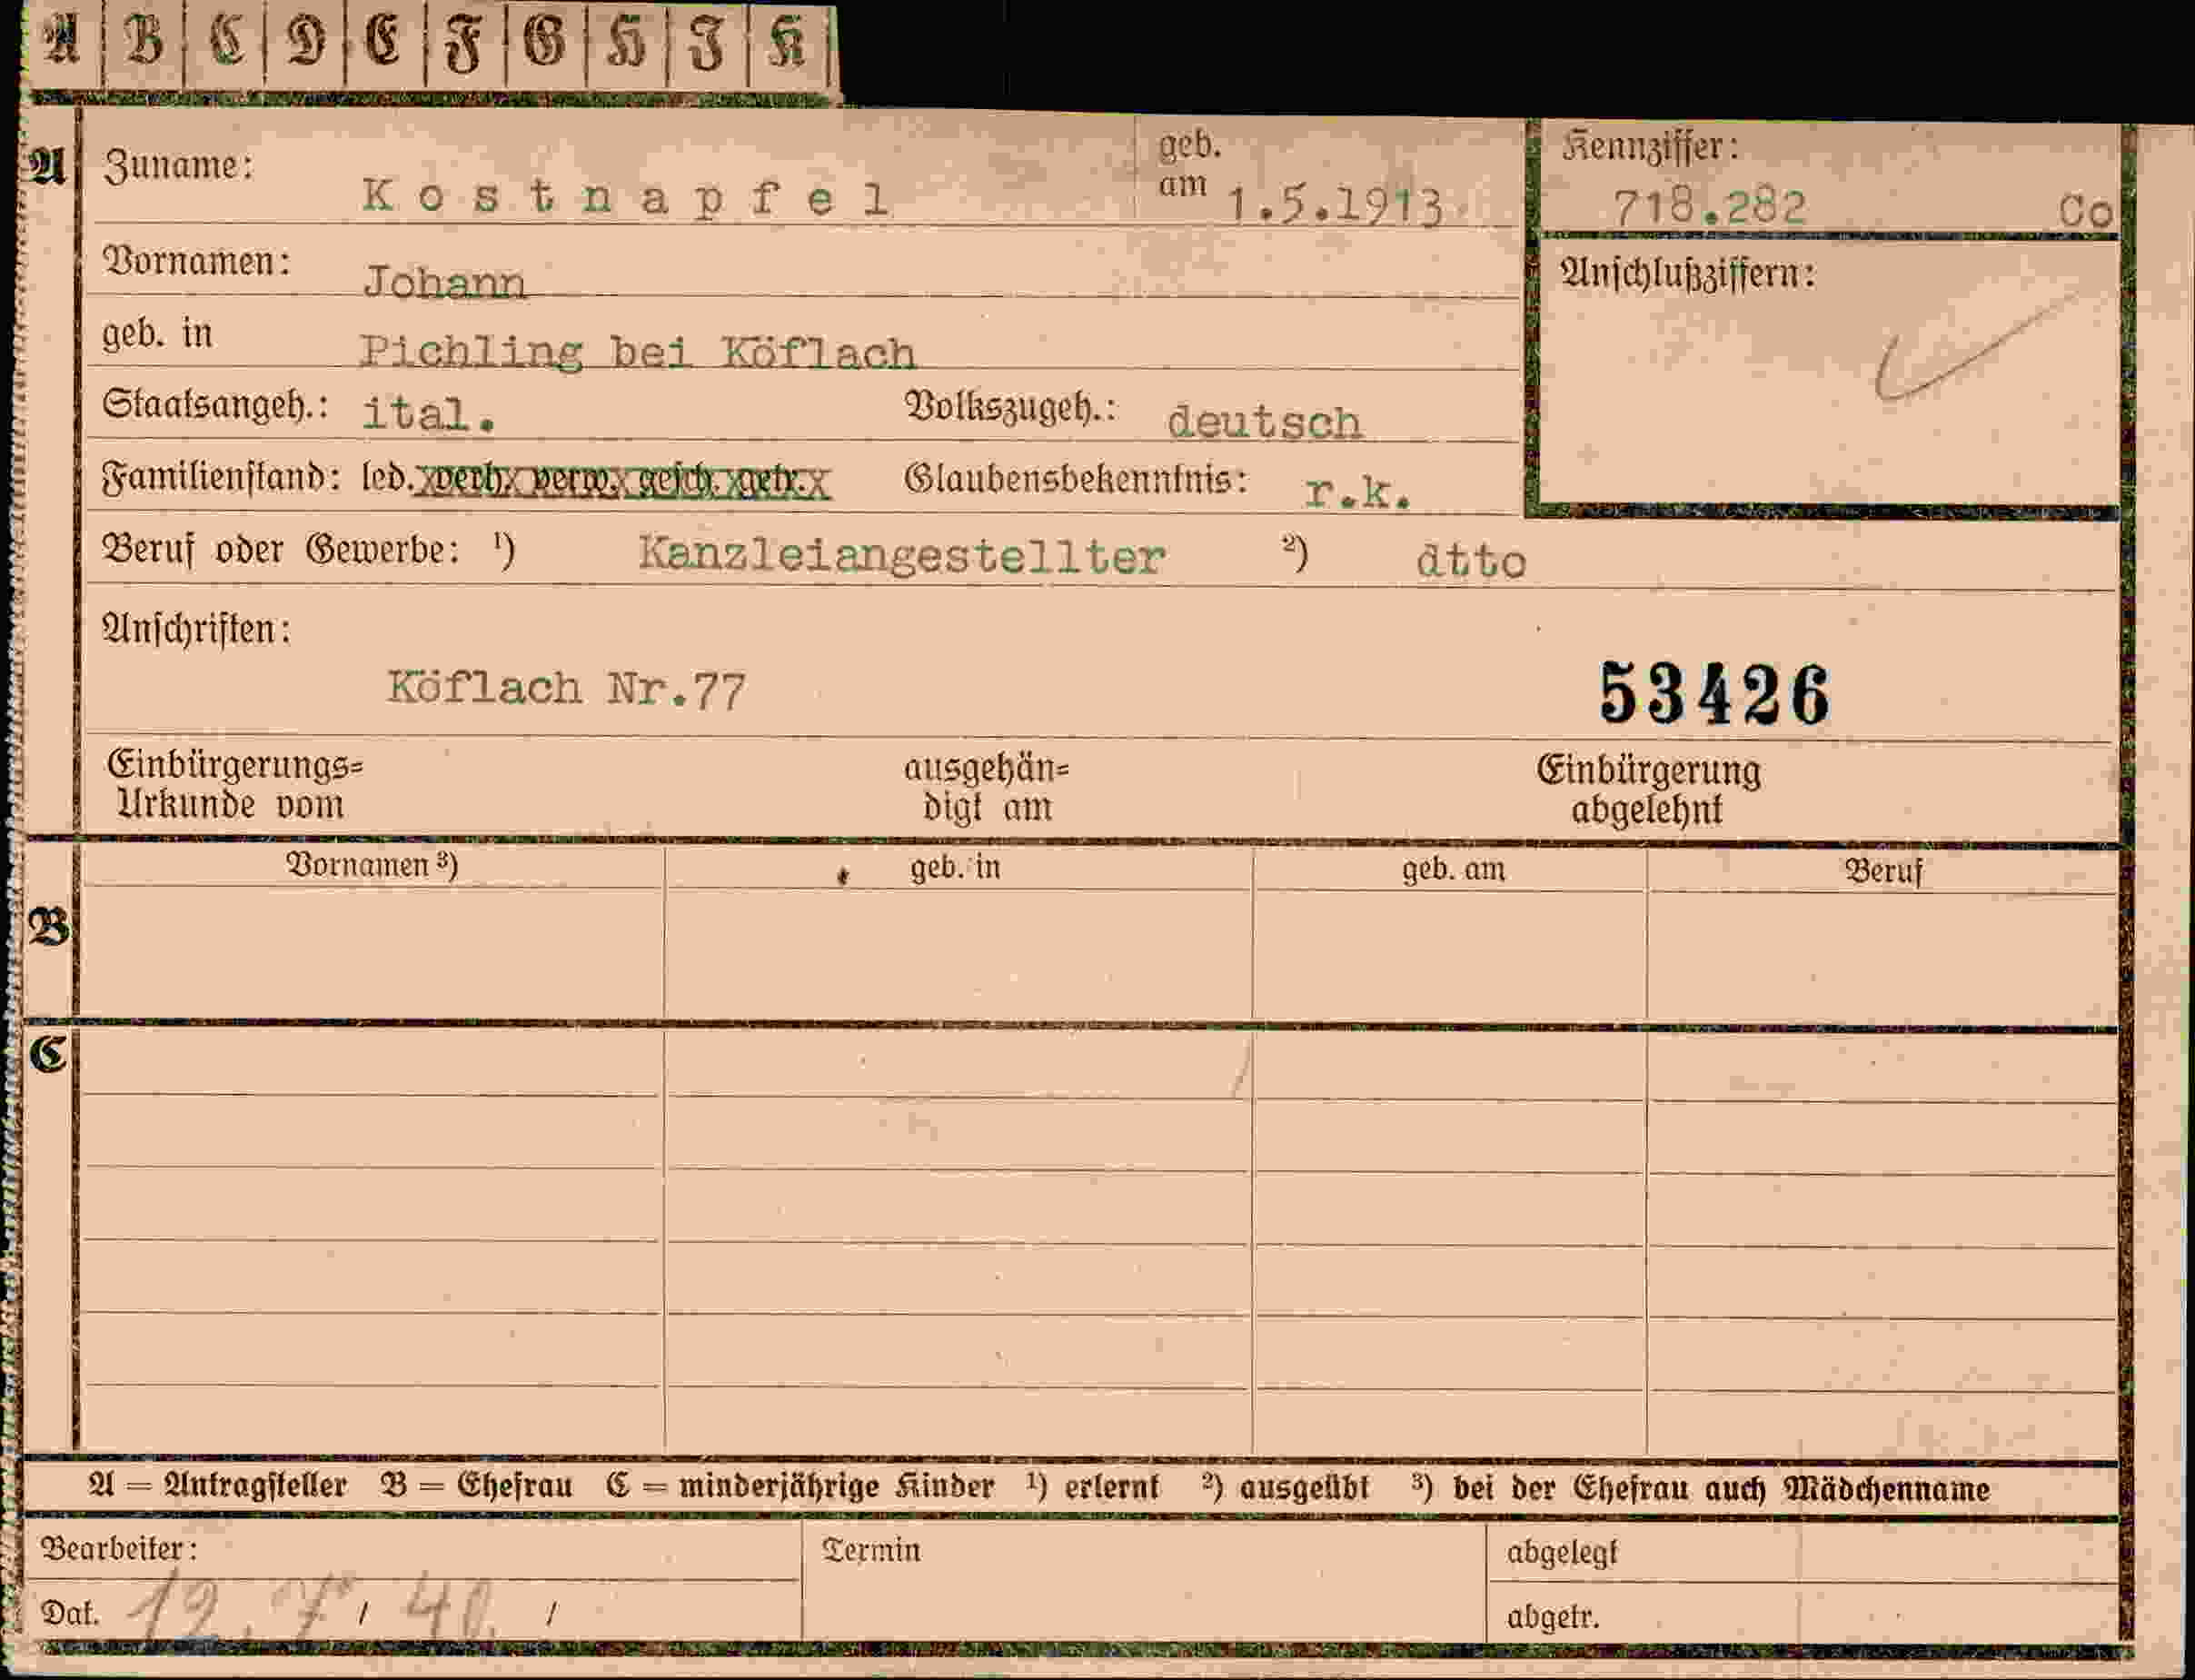 A B C D E F G H J K
A Zuname: Kostnapfel geb. am 1.5.1913 Kennziffer: 718.282 Co
Vornamen: Johann Anschlußziffern:
geb. in Pichling bei Köflach
Staatsangeh.: ital. Volkszugeh.: deutsch
Familienstand: led. verh. verw. gesch. getr. Glaubensbekenntnis: r.k.
Beruf oder Gewerbe: ¹) Kanzleiangestellter ²) dtto
Anschriften:
Köflach Nr.77 53426
Einbürgerungs= ausgehän= Einbürgerung
Urkunde vom digt am abgelehnt
Vornamen ³) geb. in geb. am Beruf
B
C
A = Antragsteller B = Ehefrau C = minderjährige Kinder ¹) erlernt ²) ausgeübt ³) bei der Ehefrau auch Mädchenname
Bearbeiter: Termin abgelegt
Dat. 12. 7. / 40. / abgetr.